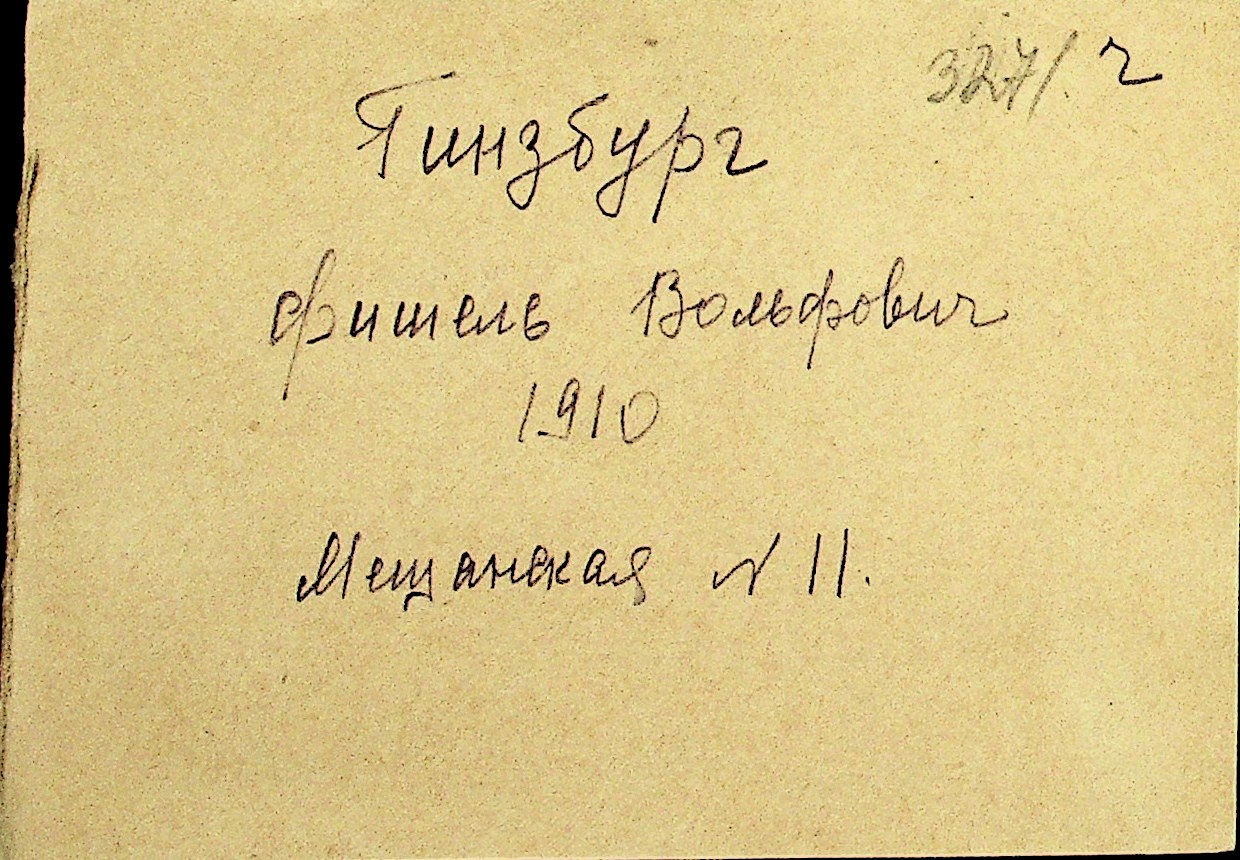 327/. г
Гинзбург
Фишель Вольфович
1910
Мещанская N 11.